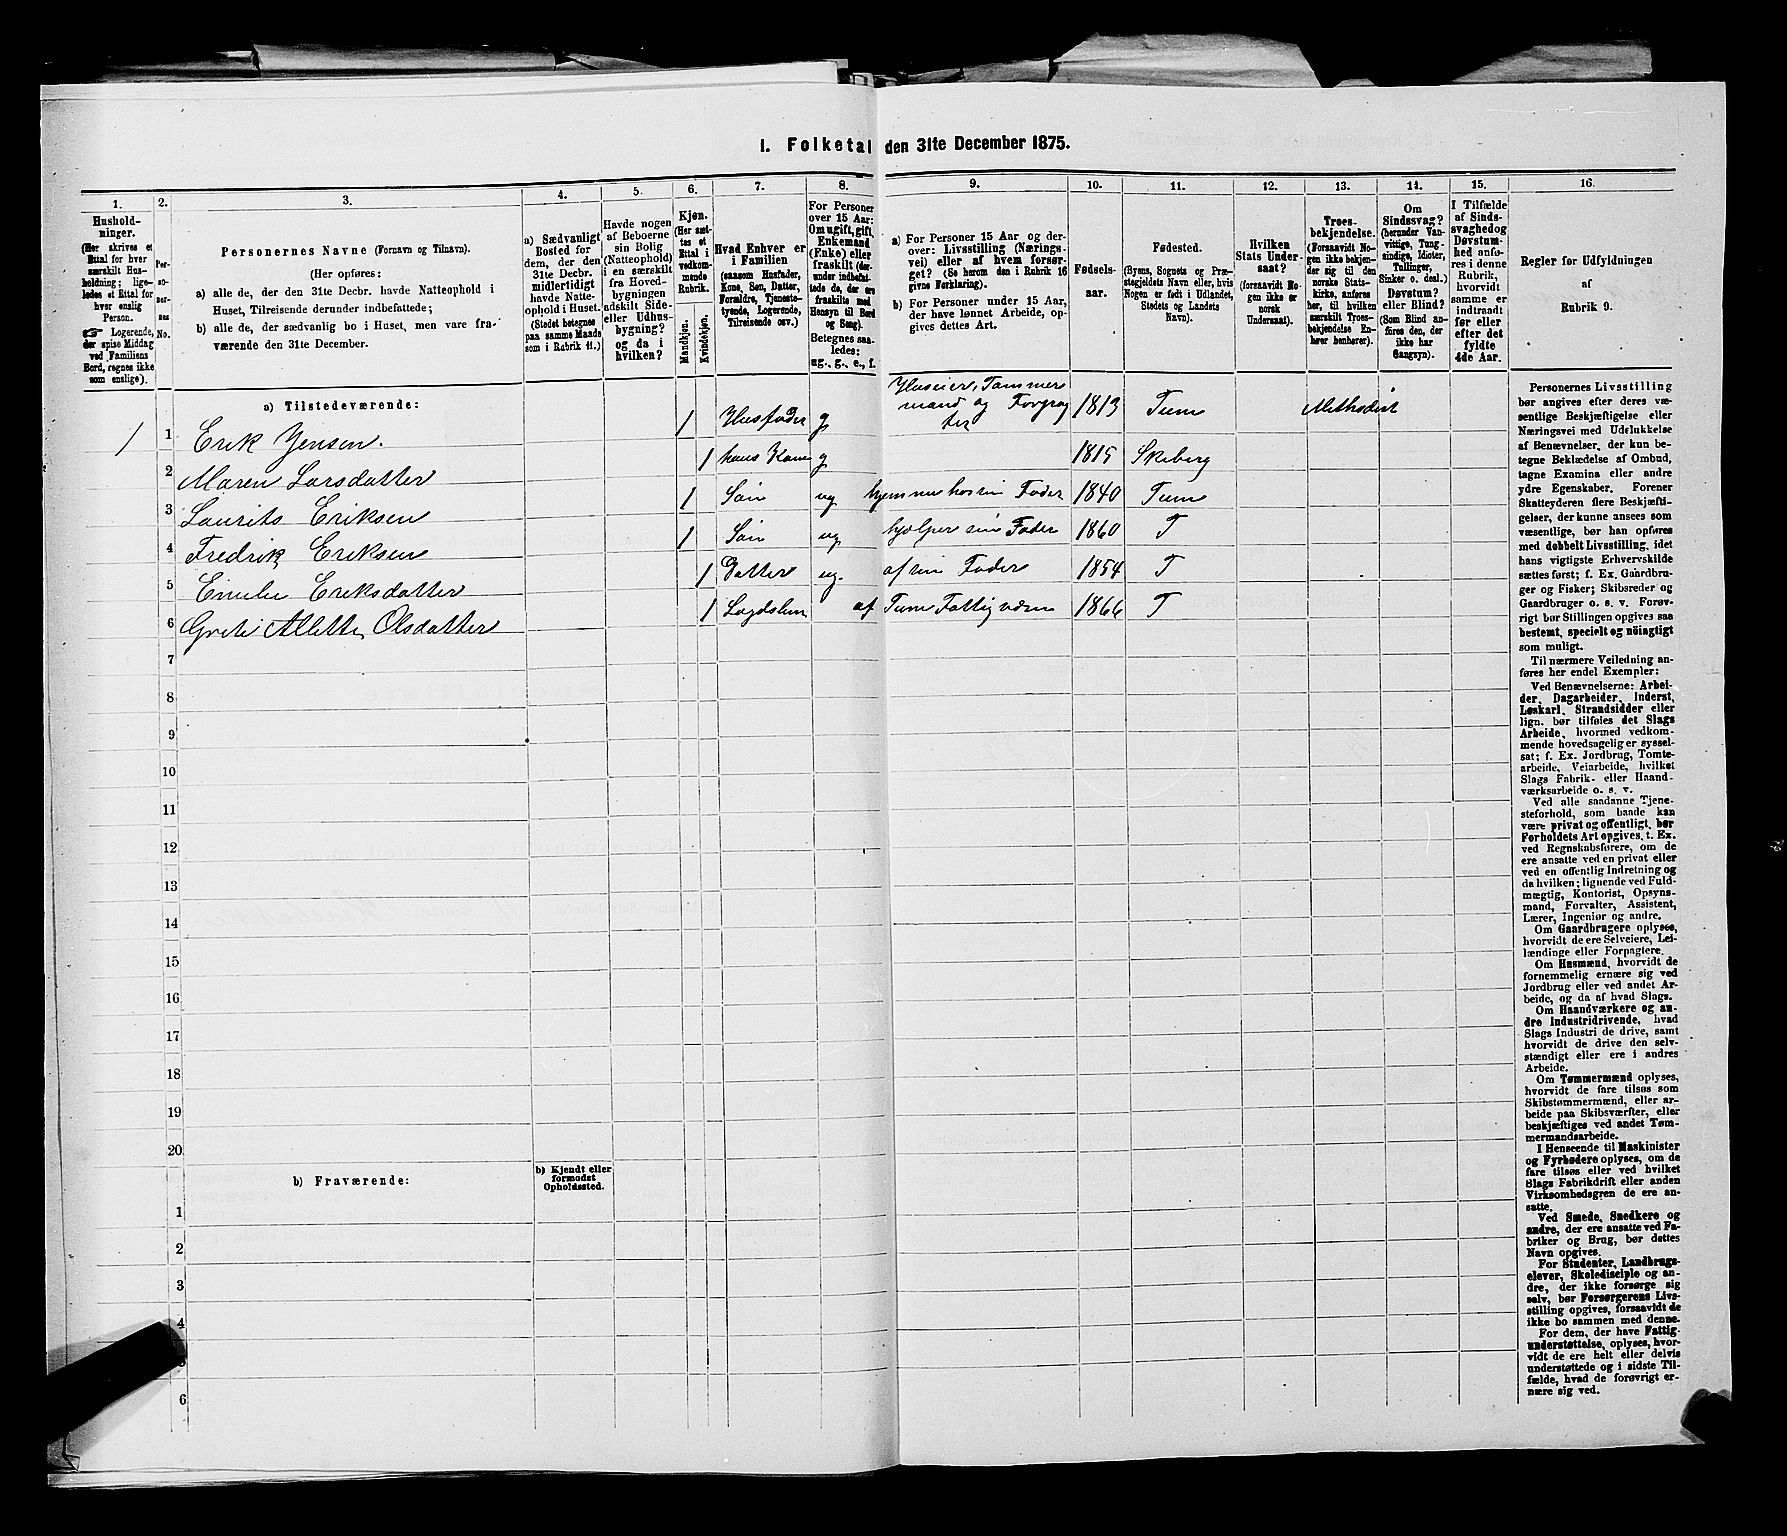 I. Folketal den 31te December 1875.
1.
Hushold-
ninger.
(Her skrives et
Ettal for hver
særskilt Hus-
holdning; lige-
ledes et Ettal for
hver enslig
Person.
☞ Logerende,
der spise Middag
ved Familiens
Bord, regnes ikke
som enslige).
2.
Per-
so-
ner-
nes
No.
3.
Personernes Navne (Fornavn og Tilnavn).
(Her opføres:
a) alle de, der den 31te Decbr. havde Natteophold i
Huset, Tilreisende derunder indbefattede;
b) alle de, der sædvanlig bo i Huset, men vare fra-
værende den 31te December.
4.
a) Sædvanligt
Bosted for
dem, der den
31te Decbr.
midlertidigt
havde Natte-
ophold i Huset.
(Stedet betegnes
paa samme Maade
som i Rubrik 11.)
5.
Havde nogen
af Beboerne
sin Bolig
(Natteophold)
i en særskilt
fra Hoved-
bygningen
adskilt Side-
eller Udhus-
bygning?
og da i
hvilken?
6.
Kjøn.
(Her sæt-
tes et
Ettal i
vedkom-
mende
Rubrik.
Mandkjøn.
Kvindekjøn.
7.
Hvad Enhver er
i Familien
(saasom Husfader,
Kone, Søn, Datter,
Forældre, Tjeneste-
tyende, Logerende,
Tilreisende osv.)
8.
For Personer
over 15 Aar:
Om ugift, gift,
Enkemand
(Enke) eller
fraskilt (der-
under indbefat-
tede de, der ere
fraskilte med
Hensyn til Bord
og Seng).
Betegnes saa-
ledes:
ug., g., e., f.
9.
a) For Personer 15 Aar og der-
over: Livsstilling (Nærings-
vei) eller af hvem forsør-
get? (Se herom den i Rubrik 16
givne Forklaring).
b) For Personer under 15 Aar,
der have lønnet Arbeide, op-
gives dettes Art.
10.
Fødsels-
aar.
11.
Fødested.
(Byens, Sognets og Præ-
stegjeldets Navn eller, hvis
Nogen er født i Udlandet,
Stedets og Landets
Navn).
12.
Hvilken
Stats Under-
saat?
(forsaavidt No-
gen ikke er
norsk
Undersaat).
13.
Troes-
bekjendelse.
(Forsaavidt No-
gen ikke bekjen-
der sig til den
norske Stats-
kirke, anføres
her, til hvilken
særskilt Troes-
bekjendelse En-
hver henhører).
14.
Om
Sindssvag?
(herunder Van-
vittige, Tung-
sindige, Idioter,
Tullinger,
Sinker o. desl.)
Døvstum?
eller Blind?
(Som Blind an-
føres den, der
ikke har
Gangsyn).
15.
I Tilfælde
af Sinds-
svaghed og
Døvstum-
hed anfø-
res i denne
Rubrik,
hvorvidt
samme er
indtraadt
før eller
efter det
fyldte
4de Aar.
16.
Regler for Udfyldningen
af
Rubrik 9.
a) Tilstedeværende:
1 1 Erik Jensen. 1 Husfader g Huseier, Tømmermand og Forpagter 1813 Tune Methodist
2 Maren Larsdatter 1 hans Kone g 1815 Skeberg
3 Laurits Eriksen 1 Søn ug hjemme hos sin Fader 1840 Tune
4 Fredrik Eriksen 1 Søn ug hjelper sin Fader 1860 T
5 Emilie Eriksdatter 1 Datter ug. af sin Fader 1854 T
6 Grete Alette Olsdatter 1 Lægdslem af Tune Fattigvæsen 1866 T
7
8
9
10
11
12
13
14
15
16
17
18
19
20
b) Fraværende:
b) Kjendt eller
formodet
Opholdssted.
1
2
3
4
5
6
Personernes Livsstilling
bør angives efter deres væ-
sentlige Beskjæftigelse eller
Næringsvei med Udelukkelse
af Benævnelser, der kun be-
tegne Beklædelse af Ombud,
tagne Examina eller andre
ydre Egenskaber. Forener
Skatteyderen flere Beskjæfti-
gelser, der kunne ansees som
væsentlige, bør han opføres
med dobbelt Livsstilling, idet
hans vigtigste Erhvervskilde
sættes først; f. Ex. Gaardbru-
ger og Fisker; Skibsreder og
Gaardbruger o. s. v. Forøv-
rigt bør Stillingen opgives saa
bestemt, specielt og nöiagtigt
som muligt.
Til nærmere Veiledning an-
føres her endel Exempler:
Ved Benævnelserne: Arbei-
der, Dagarbeider, Inderst,
Løskarl, Strandsidder eller
lign. bør tilføies det Slags
Arbeide, hvormed vedkom-
mende hovedsagelig er syssel-
sat; f. Ex. Jordbrug, Tomte-
arbeide, Veiarbeide, hvilket
Slags Fabrik- eller Haand-
værksarbeide o. s. v.
Ved alle saadanne Tjene-
steforhold, som baade kan
være privat og offentligt, bør
Forholdets Art opgives, t. Ex.
ved Regnskabsførere, om de
ere ansatte ved en privat eller
ved en offentlig Indretning og
da hvilken; lignende ved Fuld-
mægtig, Kontorist, Opsyns-
mand, Forvalter, Assistent,
Lærer, Ingeniør og andre.
Om Gaardbrugere oplyses,
hvorvidt de ere Selveiere, Lei-
lændinge eller Forpagtere.
Om Husmænd, hvorvidt de
fornemmelig ernære sig ved
Jordbrug eller ved andet Ar-
beide, og da af hvad Slags.
Om Haandværkere og an-
dre Industridrivende, hvad
Slags Industri de drive, samt
hvorvidt de drive den selv-
stændigt eller ere i andres
Arbeide.
Om Tømmermænd oplyses,
hvorvidt de fare tilsøs som
Skibstømmermænd, eller ar-
beide paa Skibsværfter, eller
beskjæftiges ved andet Tøm-
mermandsarbeide.
I Henseende til Maskinister
og Fyrbødere oplyses, om de
fare tilsøs eller ved hvilket
Slags Fabrikdrift eller anden
Virksomhedsgren de ere an-
satte.
Ved Smede, Snedkere og
andre, der ere ansatte ved Fa-
briker og Brug, bør dettes
Navn opgives.
For Studenter, Landbrugs-
elever, Skoledisciple og an-
dre, der ikke forsørge sig
selv, bør Forsørgerens Livs-
stilling opgives, forsaavidt de
ikke bo sammen med denne.
For dem, der have Fattig-
understøttelse, oplyses, hvor-
vidt de ere helt eller delvis
understøttede og i sidste Til-
fælde, hvad de forøvrigt er-
nære sig ved.